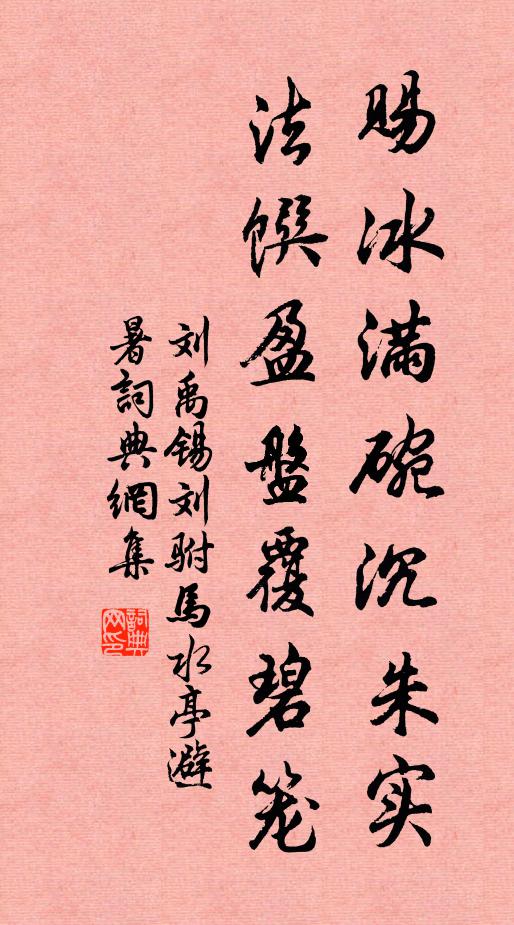 赐冰满碗沉朱实
法馔盈盘覆碧笼
刘禹锡刘驸马水亭避
暑詞典網集
詞典
网印